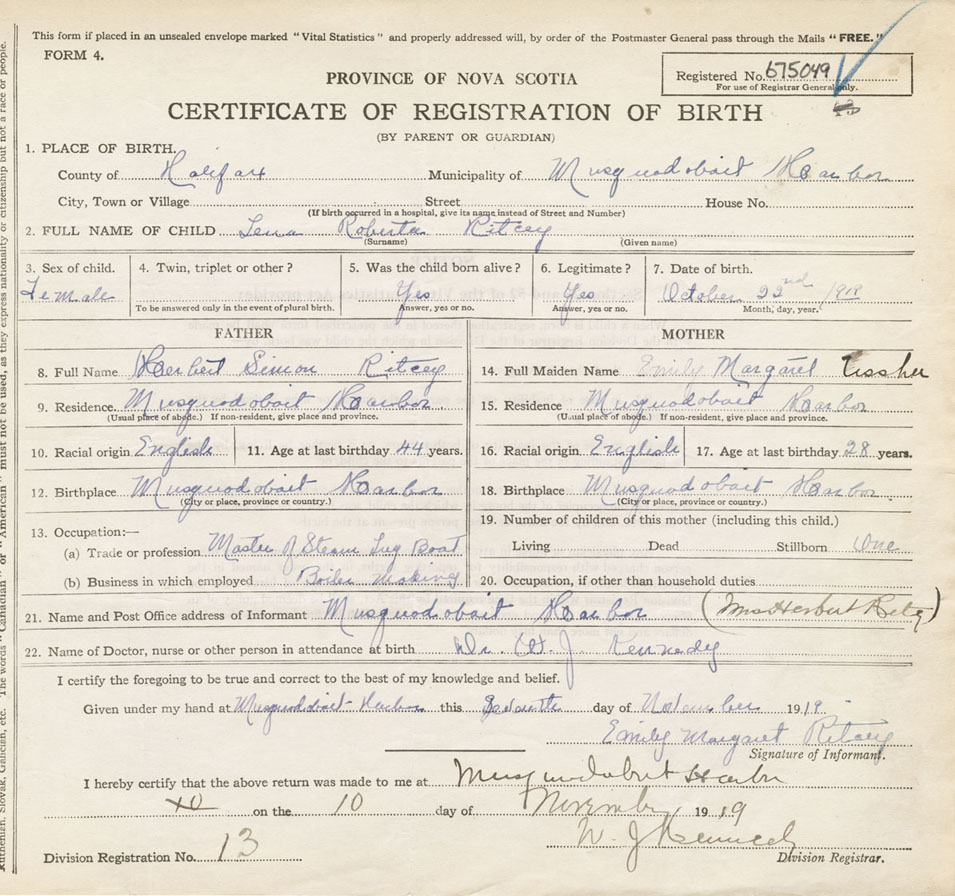 This form if placed in an unsealed envelope marked "Vital Statistics" and properly addressed will, by order of the Postmaster General pass through the Mails "FREE."
FORM 4.
PROVINCE OF NOVA SCOTIA
Registered No. 675049
For use of Registrar General only.
CERTIFICATE OF REGISTRATION OF BIRTH
(BY PARENT OR GUARDIAN)
1. PLACE OF BIRTH.
County of Halifax Municipality of Musquodoboit Harbor
City, Town or Village Street House No.
(If birth occurred in a hospital, give its name instead of Street and Number)
2. FULL NAME OF CHILD Lena Roberta Ritcey
(Surname) (Given name)
3. Sex of child. 4. Twin, triplet or other? 5. Was the child born alive? 6. Legitimate? 7. Date of birth.
Female Yes Yes October 22nd 1919
To be answered only in the event of plural birth. Answer, yes or no. Answer, yes or no. Month, day, year.
FATHER MOTHER
8. Full Name Herbert Simon Ritcey 14. Full Maiden Name Emily Margaret
9. Residence Musquodoboit Harbor 15. Residence Musquodoboit Harbor
(Usual place of abode.) If non-resident, give place and province. (Usual place of abode.) If non-resident, give place and province.
10. Racial origin English 11. Age at last birthday 44 years. 16. Racial origin English 17. Age at last birthday 28 years.
12. Birthplace Musquodoboit Harbor 18. Birthplace Musquodoboit Harbor
(City or place, province or country.) (City or place, province or country.)
13. Occupation:— 19. Number of children of this mother (including this child.)
(a) Trade or profession Master of Steam Tug Boat Living Dead Stillborn One
(b) Business in which employed Boiler Making 20. Occupation, if other than household duties
21. Name and Post Office address of Informant Musquodoboit Harbor (Mrs Herbert
22. Name of Doctor, nurse or other person in attendance at birth Dr. W. J. Kennedy
I certify the foregoing to be true and correct to the best of my knowledge and belief.
Given under my hand at Musquodoboit Harbor this day of November 1919
Emily Margret Ritcey
Signature of Informant.
I hereby certify that the above return was made to me at Musquodoboit Harbor
on the 10 day of November 1919
W. J. Kennedy
Division Registration No. 13 Division Registrar.
The words "Canadian" or "American" must not be used, as they express nationality or citizenship but not a race or people.
Ruthenian, Slovak, Galician, etc.